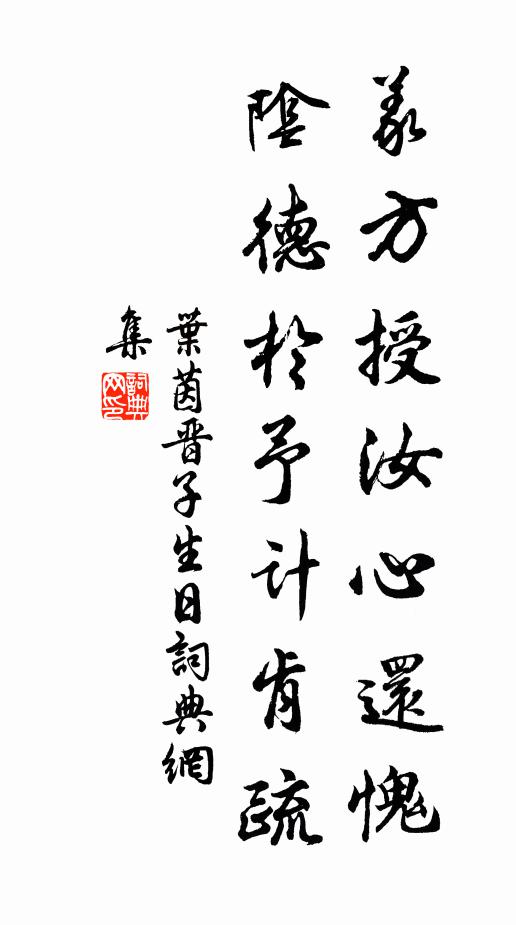 義方授汝心還愧
陰德於予計肯疏
葉茵晋子生日詞典網
集
詞典
网印